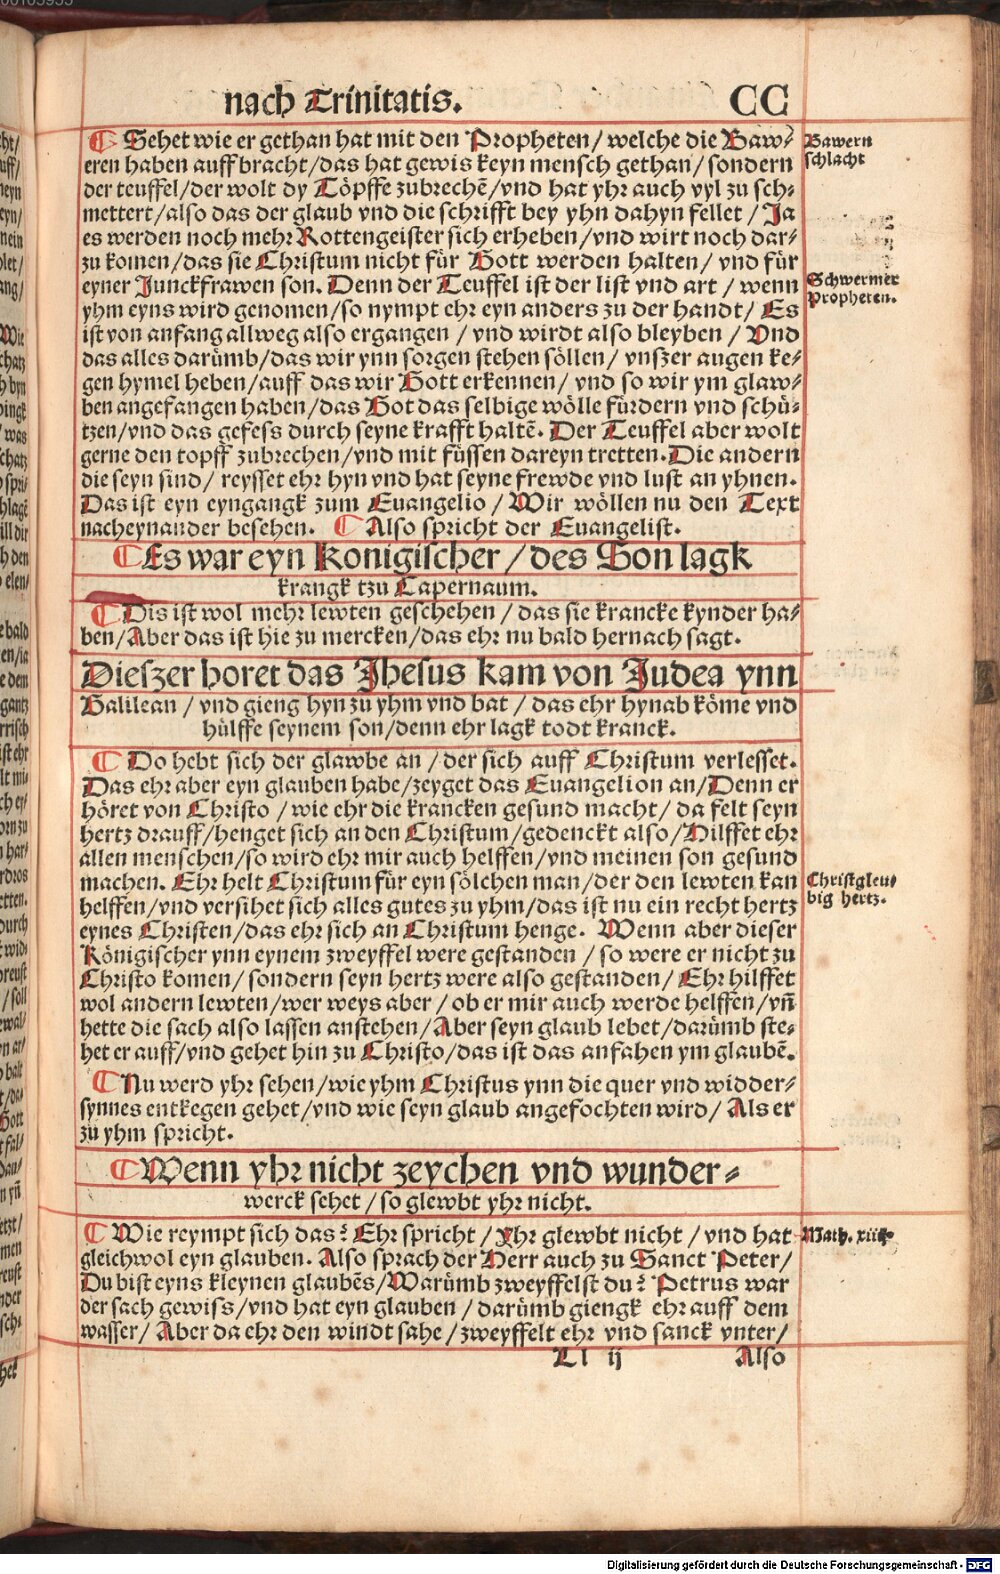 nach Trinitatis. CC
Sehet wie er gethan hat mit den Propheten/ welche die Baw⸗
eren haben auffbracht/ das hat gewis keyn mensch gethan/ sondern
der teuffel/ der wolt dy Töpffe zubrechē/ vnd hat yhr auch vyl zu sch⸗
mettert/ also das der glaub vnd die schrifft bey yhn dahyn fellet/ Ja
es werden noch mehr Rottengeister sich erheben/ vnd wirt noch dar⸗
zu komen/ das sie Christum nicht für Gott werden halten/ vnd für
eyner Junckfrawen son. Denn der Teuffel ist der list vnd art/ wenn
yhm eyns wird genomen/ so nympt ehr eyn anders zu der handt/ Es
ist von anfang allweg also ergangen/ vnd wirdt also bleyben/ Vnd
das alles darümb/ das wir ynn sorgen stehen söllen/ vnszer augen ke⸗
gen hymel heben/ auff das wir Gott erkennen/ vnd so wir ym glaw⸗
ben angefangen haben/ das Got das selbige wölle fürdern vnd schü⸗
tzen/ vnd das gefess durch seyne krafft haltē. Der Teuffel aber wolt
gerne den topff zubrechen/ vnd mit füssen dareyn tretten. Die andern
die seyn sind/ reysset ehr hyn vnd hat seyne frewde vnd lust an yhnen.
Das ist eyn eyngangk zum Euangelio/ Wir wöllen nu den Text
nacheynander besehen. Also spricht der Euangelist.
Bawern
schlacht
Schwermer
Propheten.
Es war eyn Konigischer/ des Son lagk
krangk tzu Capernaum.
Dis ist wol mehr lewten geschehen/ das sie krancke kynder ha⸗
ben/ Aber das ist hie zu mercken/ das ehr nu bald hernach sagt.
Dieszer horet das Jhesus kam von Judea ynn
Galilean/ vnd gieng hyn zu yhm vnd bat/ das ehr hynab köme vnd
hülffe seynem son/ denn ehr lagk todt kranck.
Do hebt sich der glawbe an/ der sich auff Christum verlesset.
Das ehr aber eyn glauben habe/ zeyget das Euangelion an/ Denn er
höret von Christo/ wie ehr die krancken gesund macht/ da felt seyn
hertz drauff/ henget sich an den Christum/ gedenckt also/ Hilffet ehr
allen menschen/ so wird ehr mir auch helffen/ vnd meinen son gesund
machen. Ehr helt Christum für eyn sölchen man/ der den lewten kan
helffen/ vnd versihet sich alles gutes zu yhm/ das ist nu ein recht hertz
eynes Christen/ das ehr sich an Christum henge. Wenn aber dieser
Königischer ynn eynem zweyffel were gestanden/ so were er nicht zu
Christo komen/ sondern seyn hertz were also gestanden/ Ehr hilffet
wol andern lewten/ wer weys aber/ ob er mir auch werde helffen/ vñ
hette die sach also lassen anstehen/ Aber seyn glaub lebet/ darümb ste⸗
het er auff/ vnd gehet hin zu Christo/ das ist das anfahen ym glaubē.
Christgleu⸗
big hertz.
Nu werd yhr sehen/ wie yhm Christus ynn die quer vnd widder⸗
synnes entkegen gehet/ vnd wie seyn glaub angefochten wird/ Als er
zu yhm spricht.
Wenn yhr nicht zeychen vnd wunder⸗
werck sehet/ so glewbt yhr nicht.
Wie reympt sich das? Ehr spricht/ Yhr glewbt nicht/ vnd hat
gleichwol eyn glauben. Also sprach der Herr auch zu Sanct Peter/
Du bist eyns kleynen glaubēs/ Warümb zweyffelst du? Petrus war
der sach gewiss/ vnd hat eyn glauben/ darümb giengk ehr auff dem
wasser/ Aber da ehr den windt sahe/ zweyffelt ehr vnd sanck vnter/
Math. xiiij.
Ll ij Also
Digitalisierung gefördert durch die Deutsche Forschungsgemeinschaft - DFG